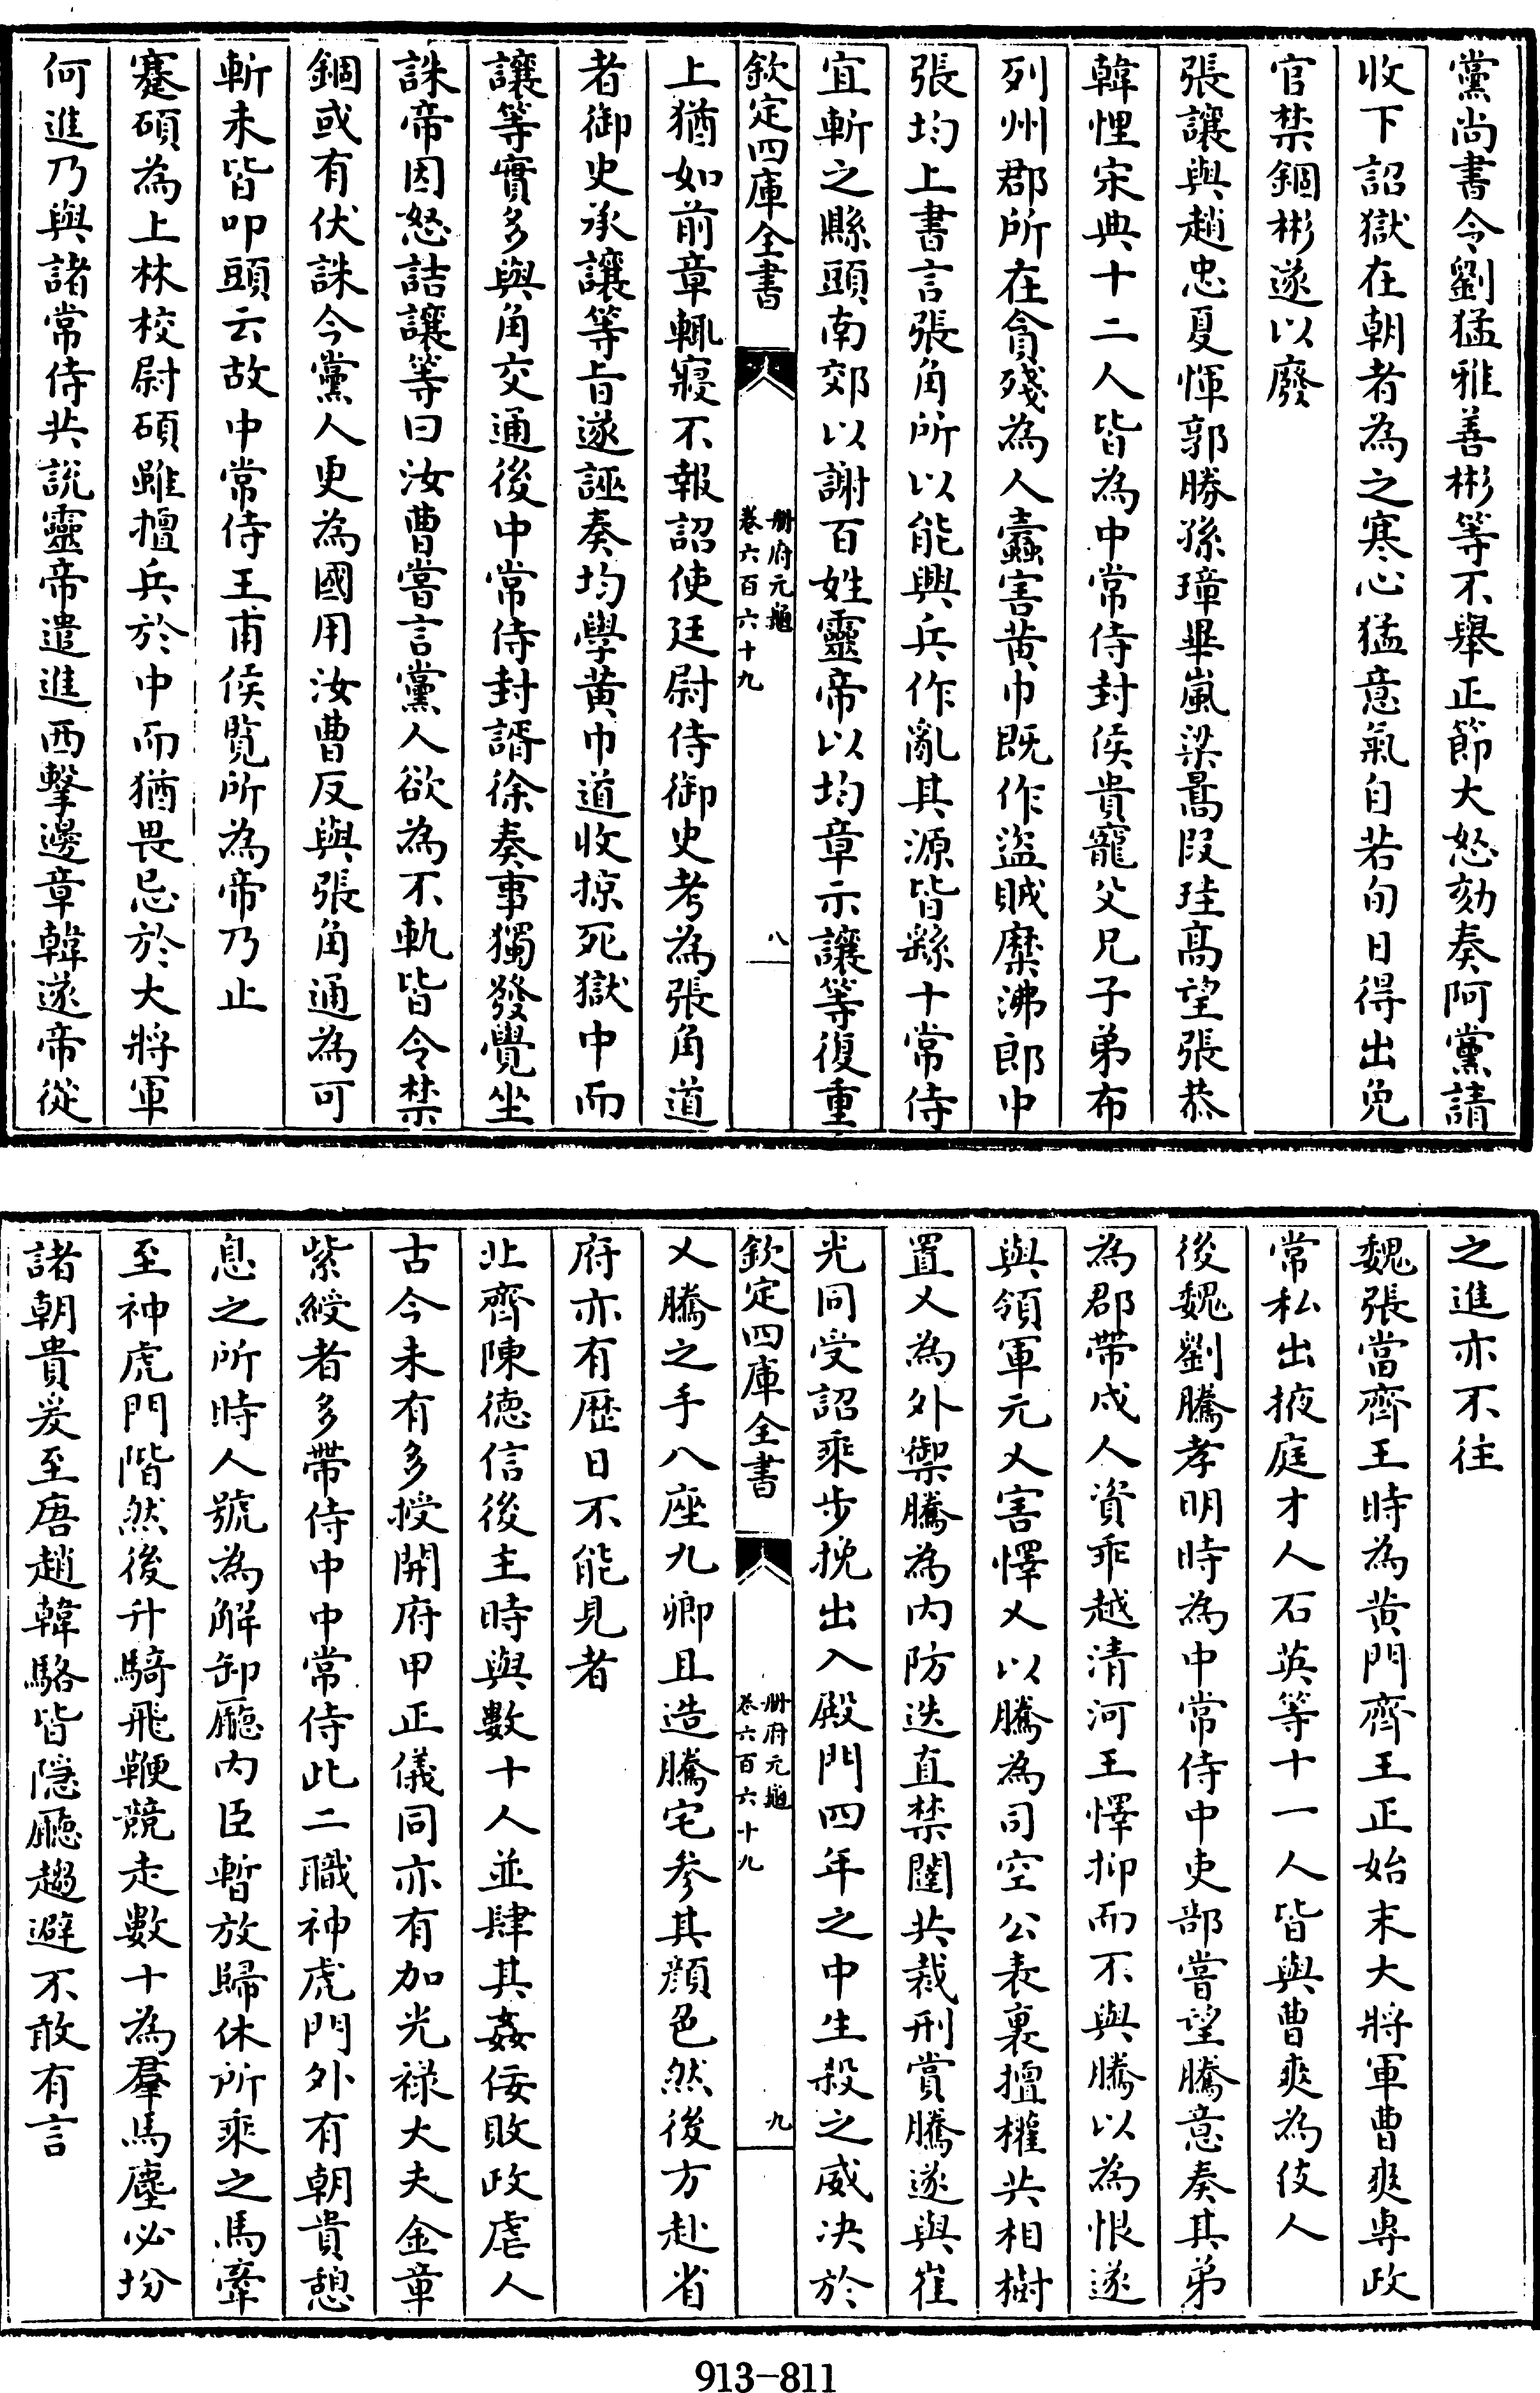 黨尚書令劉猛雅善彬等不舉正節大怒劾奏阿黨請
收下詔獄在朝者為之寒心猛意氣自若旬日得出免
官禁錮彬遂以廢
張讓與趙忠夏惲郭勝孫璋畢嵐梁暠段珪高望張恭
韓悝宋典十二人皆為中常侍封侯貴寵父兄子弟布
列州郡所在貪殘為人蠹害黄巾既作盜賊糜沸郎中
張均上書言張角所以能興兵作亂其源皆繇十常侍
宜斬之縣頭南郊以謝百姓靈帝以均章示讓等復重
欽定四庫全書
冊府元龜
卷六百六十九
八
上猶如前章輒寢不報詔使廷尉侍御史考為張角道
者御史承讓等旨遂誣奏均學黄巾道收掠死獄中而
讓等實多與角交通後中常侍封諝徐奏事獨發覺坐
誅帝因怒詰讓等曰汝曹嘗言黨人欲為不軌皆令禁
錮或有伏誅今黨人更為國用汝曹反與張角通為可
斬未皆叩頭云故中常侍王甫侯覽所為帝乃止
蹇碩為上林校尉碩雖擅兵於中而猶畏忌於大將軍
何進乃與諸常侍共説靈帝遣進西擊邊章韓遂帝從
之進亦不往
魏張當齊王時為黄門齊王正始末大將軍曹爽專政
常私出掖庭才人石英等十一人皆與曹爽為伎人
後魏劉騰孝明時為中常侍中吏部嘗望騰意奏其弟
為郡帶戍人資乖越清河王懌抑而不與騰以為恨遂
與領軍元乂害懌乂以騰為司空公表裏擅權共相樹
置乂為外禦騰為内防迭直禁闥共裁刑賞騰遂與崔
光同受詔乘步挽出入殿門四年之中生殺之威决於
欽定四庫全書
冊府元龜
卷六百六十九
九
乂騰之手八座九卿且造騰宅參其顔色然後方赴省
府亦有歴日不能見者
北齊陳德信後主時與數十人並肆其姦佞敗政虐人
古今未有多授開府甲正儀同亦有加光禄大夫金章
紫綬者多帶侍中中常侍此二職神虎門外有朝貴憩
息之所時人號為解卸廳内臣暫放歸休所乘之馬牽
至神虎門階然後升騎飛鞭競走數十為羣馬塵必坌
諸朝貴爰至唐趙韓駱皆隠廳趨避不敢有言
913-811